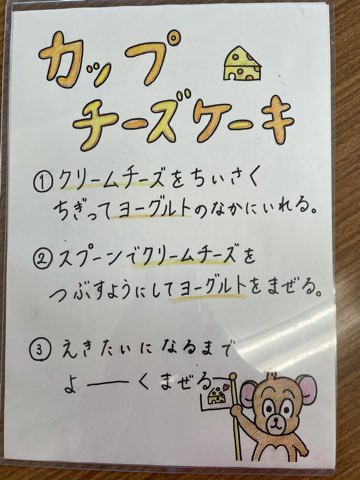 カップ
チーズケーキ
①クリームチーズをちいさく
ちぎってヨーグルトのなかにいれる。
②スプーンでクリームチーズを
つぶすようにしてヨーグルトをまぜる。
③えきたいになるまで
よーーくまぜる